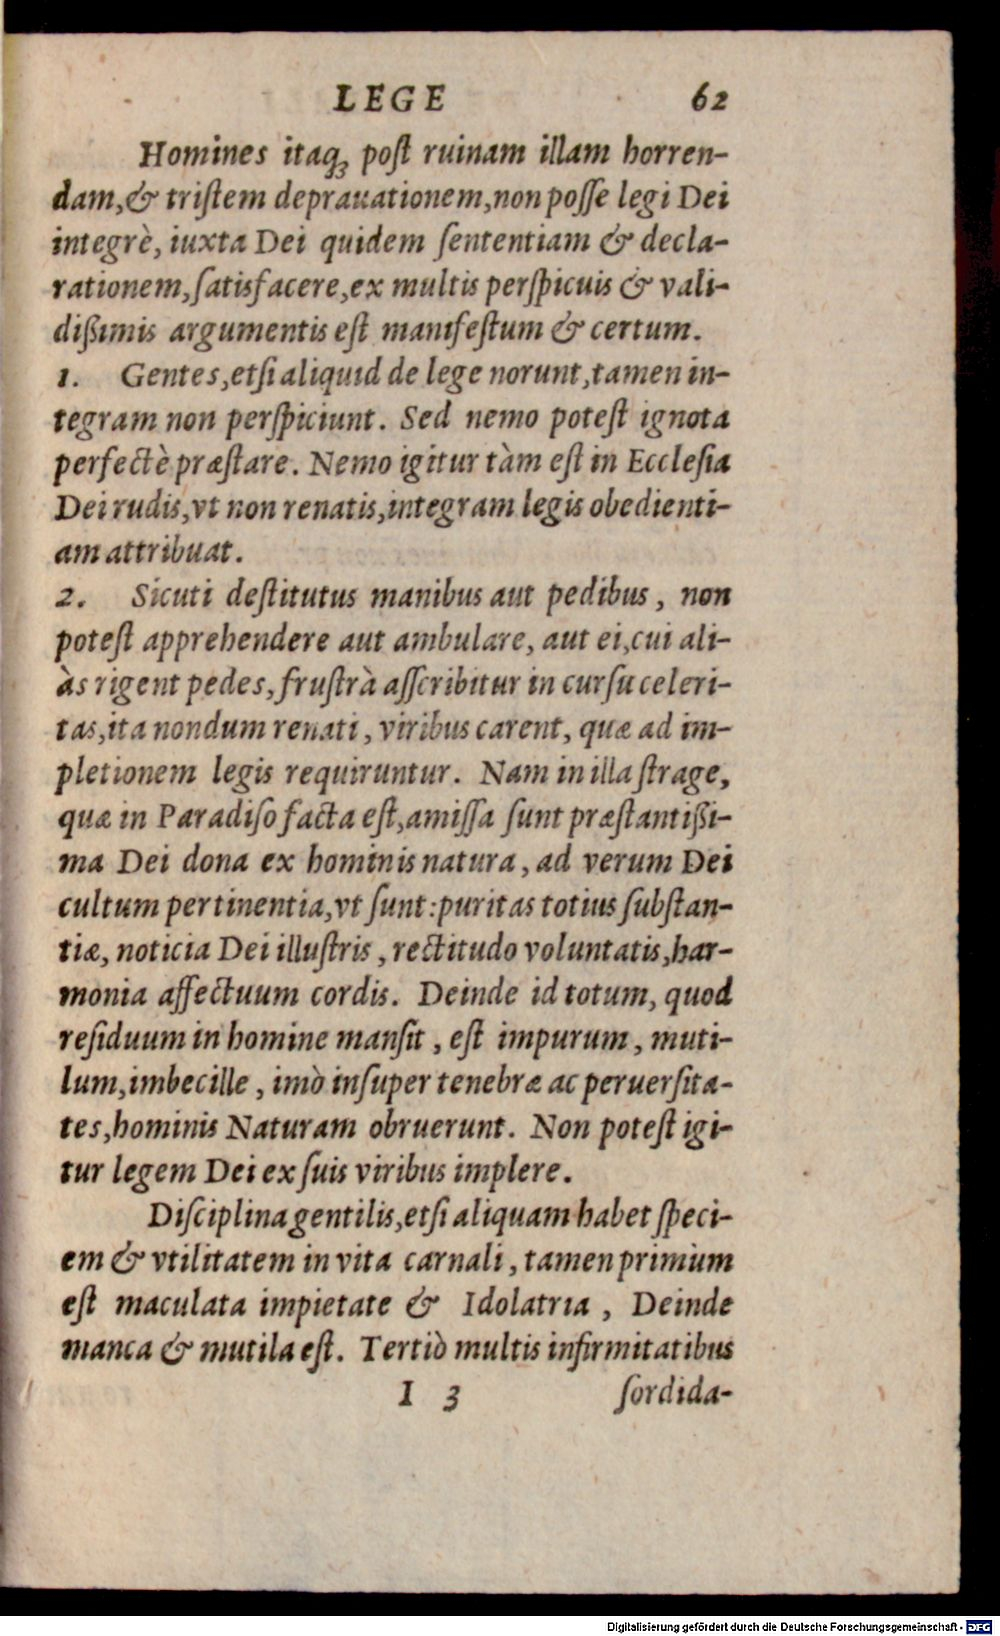 LEGE 62
Homines itaq; post ruinam illam horren-
dam,& tristem deprauationem,non posse legi Dei
integrè, iuxta Dei quidem sententiam & decla-
rationem,satisfacere,ex multis perspicuis & vali-
dißimis argumentis est manifestum & certum.
1. Gentes,etsi aliquid de lege norunt,tamen in-
tegram non perspiciunt. Sed nemo potest ignota
perfectè præstare. Nemo igitur tàm est in Ecclesia
Dei rudis,vt non renatis,integram legis obedienti-
am attribuat.
2. Sicuti destitutus manibus aut pedibus, non
potest apprehendere aut ambulare, aut ei,cui ali-
às rigent pedes, frustrà asscribitur in cursu celeri-
tas,ita nondum renati, viribus carent, quæ ad im-
pletionem legis requiruntur. Nam in illa strage,
quæ in Paradiso facta est,amissa sunt præstantißi-
ma Dei dona ex hominis natura, ad verum Dei
cultum pertinentia,vt sunt:puritas totius substan-
tiæ, noticia Dei illustris, rectitudo voluntatis,har-
monia affectuum cordis. Deinde id totum, quod
residuum in homine mansit, est impurum, muti-
lum,imbecille, imò insuper tenebræ ac peruersita-
tes,hominis Naturam obruerunt. Non potest igi-
tur legem Dei ex suis viribus implere.
Disciplina gentilis,etsi aliquam habet speci-
em & vtilitatem in vita carnali, tamen primùm
est maculata impietate & Idolatria, Deinde
manca & mutila est. Tertiò multis infirmitatibus
I 3 sordida-
Digitalisierung gefördert durch die Deutsche Forschungsgemeinschaft - DFG